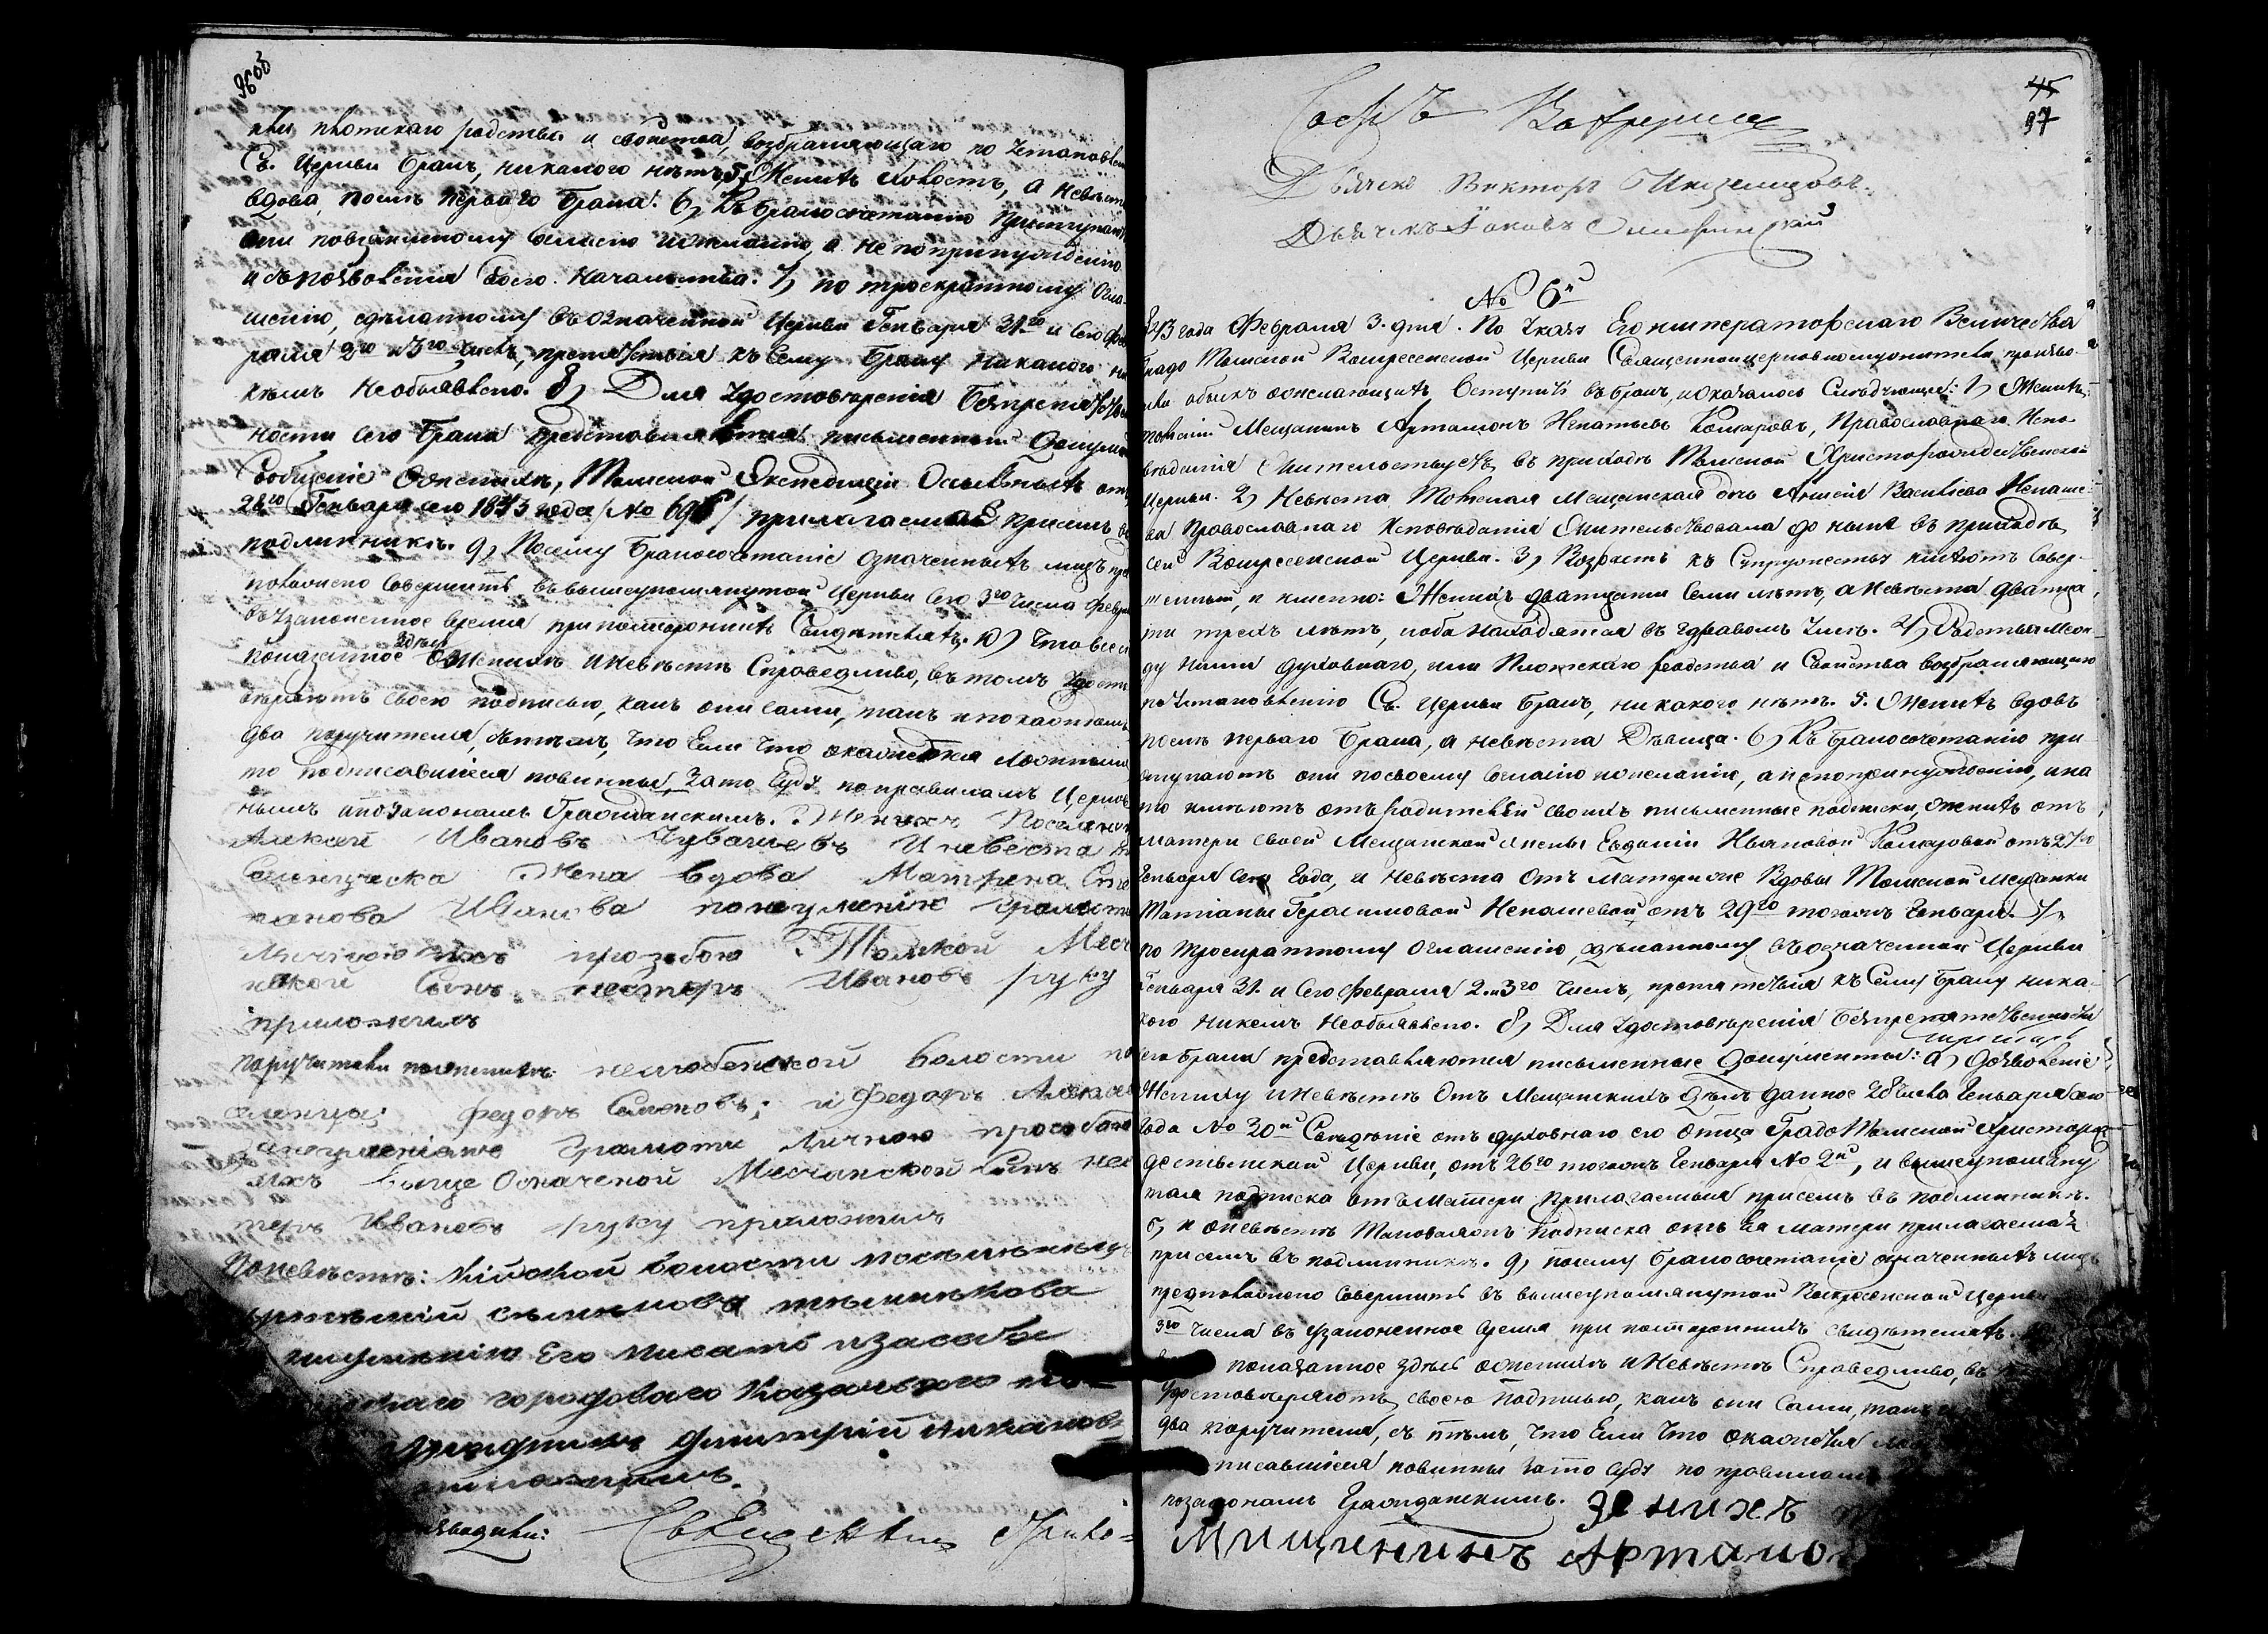 96об
нли плотскаго родства и свойства, возбраняющаго по установлен
Св. Церкви бракъ, никакого нѣтъ, 5, Женихъ холостъ, а невѣст
вдова послѣ перваго брака. 6, Къ бракосочетанію приступают
они по взаимному согласію и желанію, а не по принужденію
и съ позволенія своего начальства. 7, по троекратному огла-
шенію, сдѣланному въ означенной Церкви Генваря 31го и сего Фев
раля 2го и 3го числъ, препятствія къ сему браку никакого ни
кѣмъ необъявлено. 8, Для удостовѣренія безпрепятствен
ности сего брака представляется письменный докумен
Сообщеніе о женихѣ, Томской Экспедиціи о ссыльныхъ отъ
28го Генваря сего 1843 года /№ 696/ прилагаемое присемъ въ
подлинникѣ. 9, Посему бракосочетаніе означенныхъ лицъ пред
положено совершить въ вышеупомянутой Церкви сего 3го числа Февра
въ узаконенное время при постороннихъ свидѣтеляхъ. 10) Что все
показанное здѣсь о женихѣ и невѣстѣ справедливо, въ томъ удосто
вѣряютъ своею подписью, какъ они сами, такъ и по каждомъ
два поручителя, съ тѣмъ, что если что окажется ложнымъ
то подписавшіеся повинны за то суду по правиламъ Церков
нымъ и по законамъ гражданскимъ. Женихъ Поселенец
Алексей Ивановъ Чувачевъ И невеста
Жена вдова Матрена Степ
панова Иванова по неумению грамоте
Личною ихъ прозбою Томской Месч
нской Сынъ нестеръ Ивановъ руку
приложилъ
поручители по женихѣ: нелюбенской волости по
селенцы; федоръ Семеновъ; и Федоръ Алекс
занеумениеме грамоти личною прозбою
ихъ выше Означеной Месчанской Сынъ нес
теръ Ивановъ руку приложилъ
По невѣстѣ: Кійской волости поселенецъ
неумѣнію его писать и за себя
городоваго Казачьяго
Урядникъ Дмитрій
приложилъ.
Свящ

45
97
№ 6й
1843 года Февраля 3. дня. По Указу Его императорскаго Величества
Градо Томской Воскресенской Церкви священноцерковнослужители, произво-
или обыскъ о желающихъ вступить въ бракъ, и оказалось слѣдующее: 1, Женихъ
томской Мещанинъ Артамонъ Игнатьевъ Комаровъ, Православнаго испо-
вѣданія жительствуетъ въ приходѣ Томской Христорождественской
Церкви. 2, Невѣста Томская мещанская дочь Анисія Васильева Непаше-
ва Православнаго исповѣданія жительствовала до нынѣ въ приходѣ
сей Воскресенской Церкви. 3, Возрастъ къ супружеству имѣютъ совер-
шенный, и именно: Женихъ двадцати семи лѣтъ, а невѣста двадца
ти трехъ лѣтъ, и оба находятся въ здравомъ умѣ. 4, Родства меж-
ду ними духовнаго, или плотскаго родства и свойства возбраняющаго
по установленію Св. Церкви бракъ, никакого нѣтъ. 5. Женихъ вдовъ
послѣ перваго брака, а невѣста Дѣвица. 6, Къ бракосочетанію при
ступаютъ они по своему согласію и желанію, а не по принужденію, и на
то имѣютъ отъ родителей своихъ письменные подписки, женихъ отъ
матери своей Мещанской жены Евдокіи Ивановой Комаровой отъ 27го
Генваря сего года, и невѣста отъ матери же вдовы Томской Мещанки
Татіаны Герасимовой Непашевой, отъ 29го тогожъ Генваря. 7,
по троекратному оглашенію, сдѣланному въ означенной Церкви
Генваря 31. и сего Февраля 2. и 3го числъ, препятствія къ сему браку ника-
кого никемъ необъявлено. 8, Для удостовѣренія безпрепятственности
сего брака представляются письменные документы: а, дозволеніе
Жениху и невѣстѣ отъ Мещанскихъ дѣлъ данное 28 числа Генваря сего
года № 30й Свидѣніе отъ духовнаго его отца Градо Томской Христорож-
дественской Церкви, отъ 26го тогожъ Генваря № 2й, и вышеупомяну
тая подписка отъ матери прилагаемыя присемъ въ подлинникѣ.
б, и о невѣстѣ таковаяжъ подписка отъ ея матери прилагаемая
присемъ въ подлинникѣ. 9, посему бракосочетаніе означенныхъ лицъ
предположено совершить въ вышеупомянутой Воскресенской Церкви
3го числа въ узаконенное время при постороннихъ свидѣтеляхъ.
показанное здѣсь о женихѣ и невѣстѣ справедливо, въ
удостовѣряютъ своею подписью, какъ они сами, такъ и
два поручителя, съ тѣмъ, что если что окажется
писавшіеся повинны за то суду по правиламъ
по законамъ гражданскимъ. Женихъ
Мищининъ Артамо